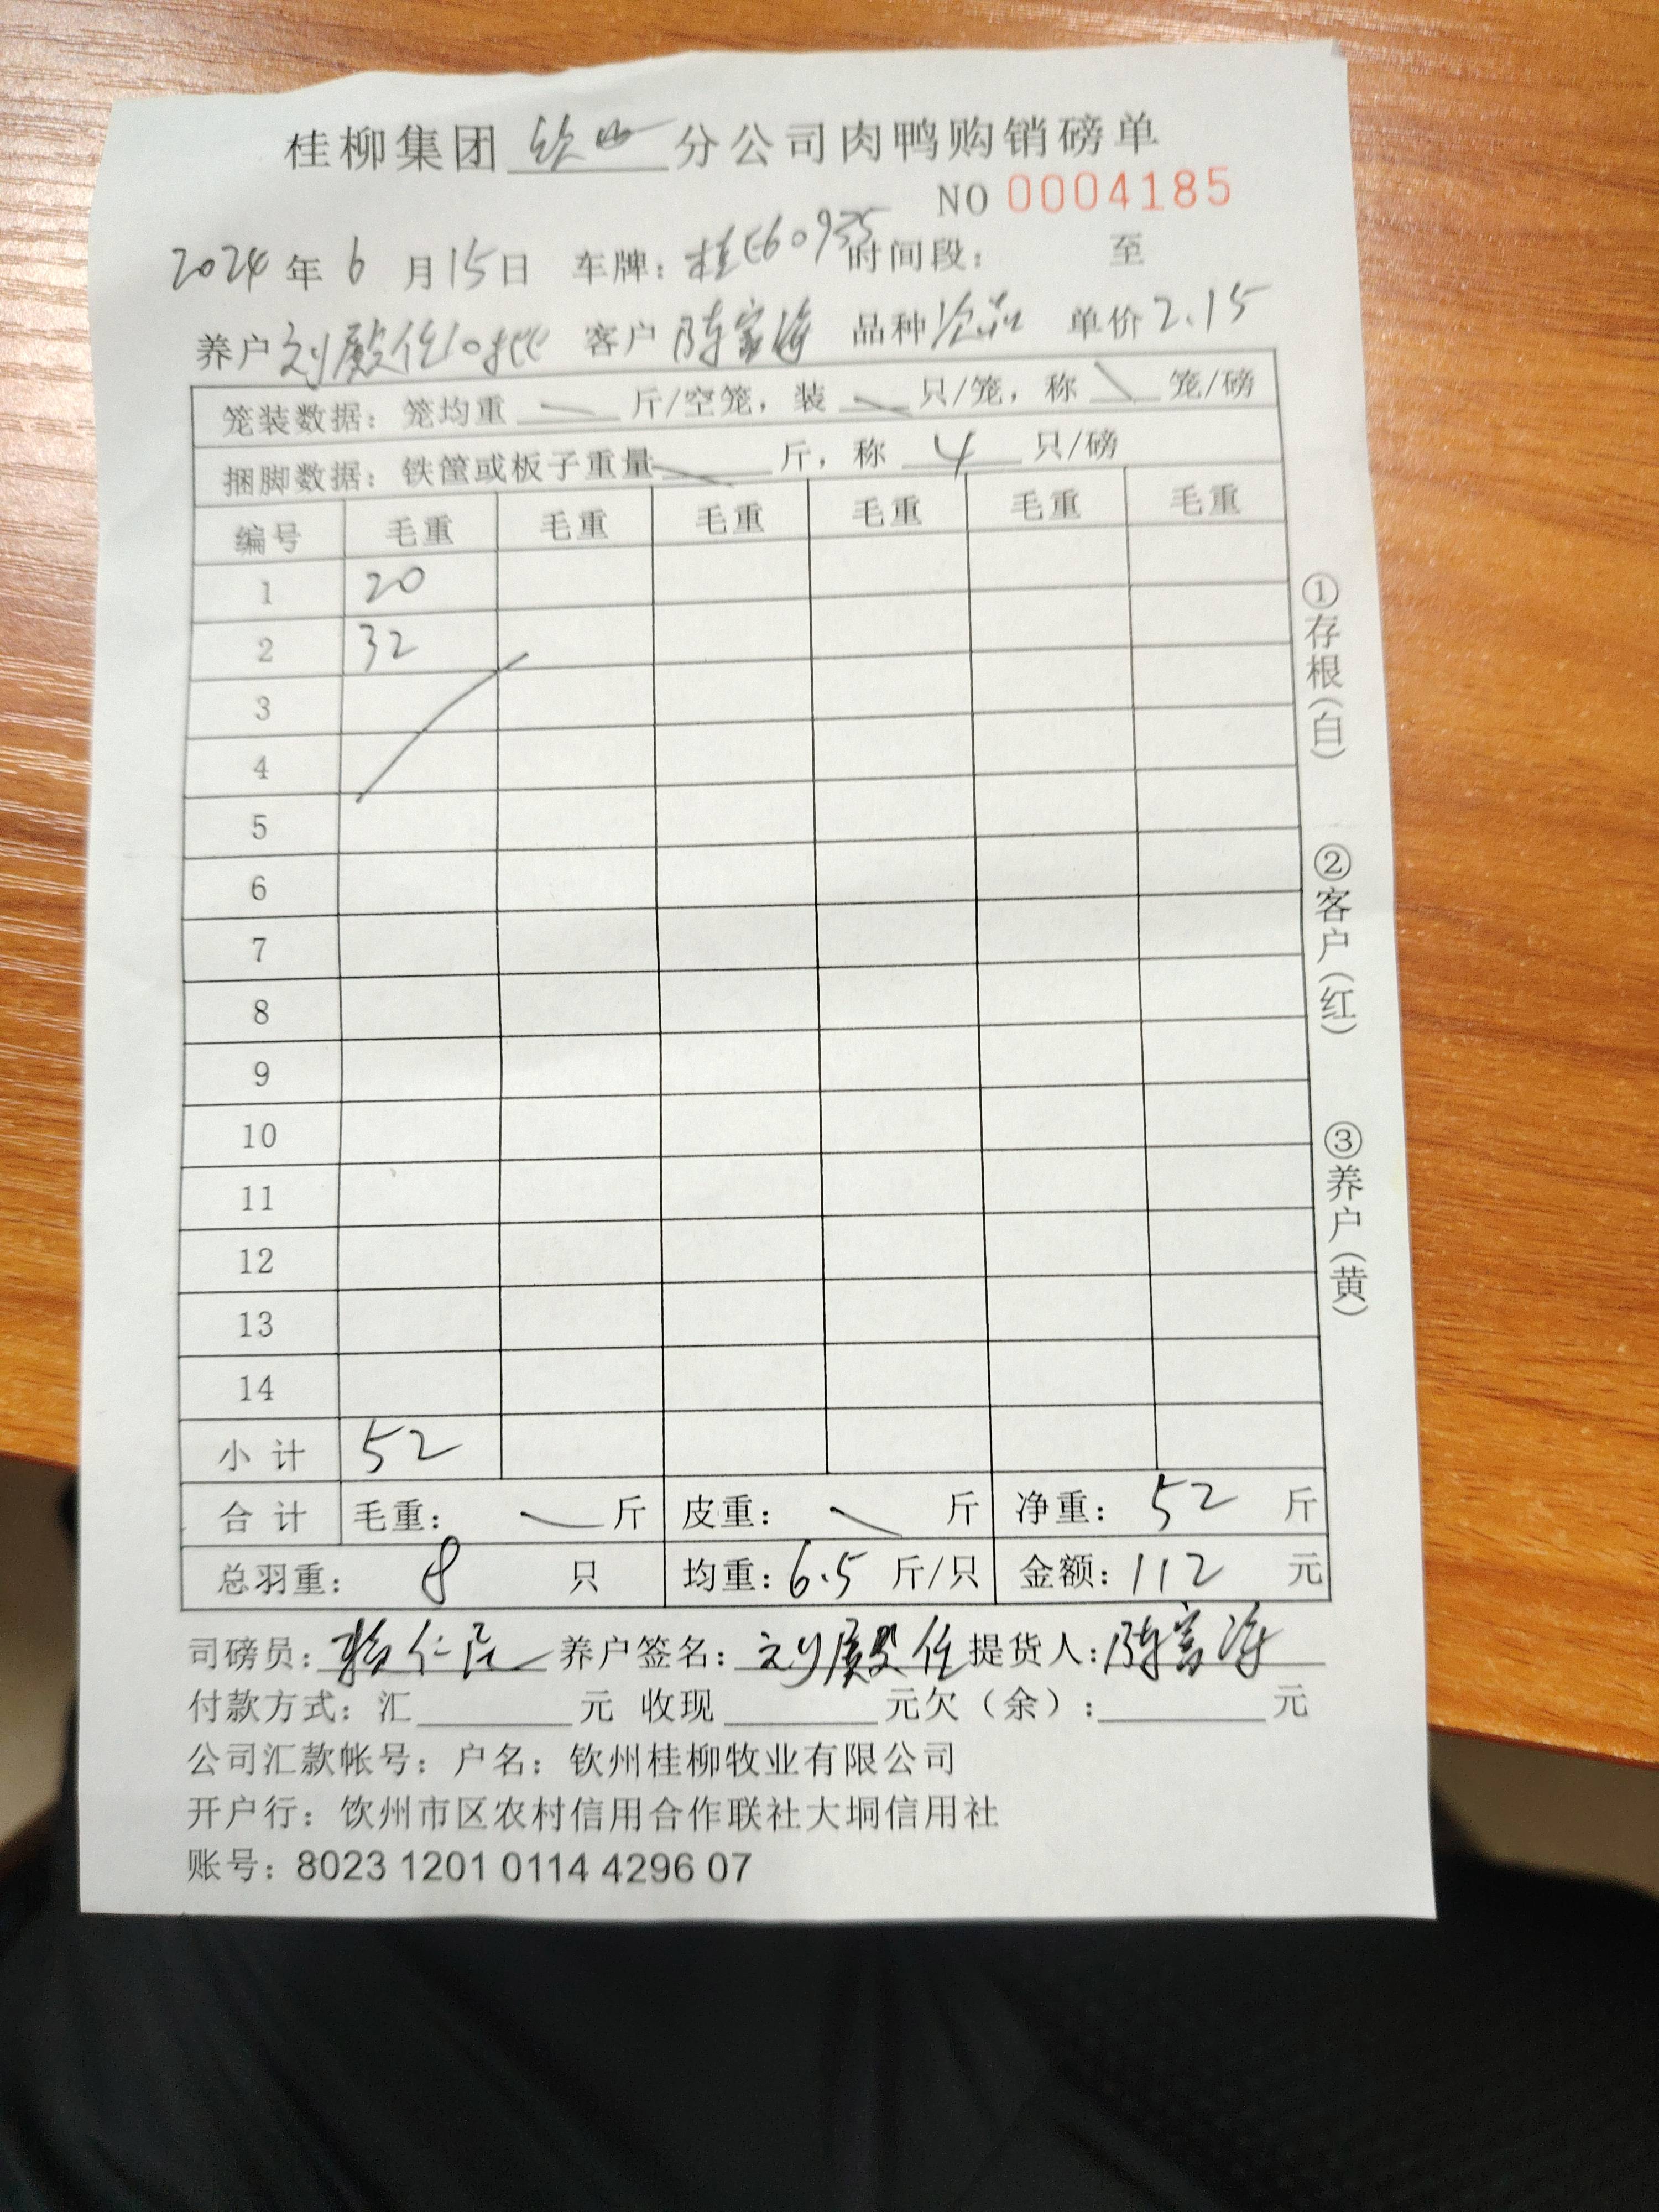 桂柳集团 钦州 分公司肉鸭购销磅单
NO 0004185
2024 年 6 月 15 日 车牌: 桂E60935 时间段: 至
养户 刘殿任 客户 陈富海 品种 单价 2.15
笼装数据: 笼均重 斤/空笼, 装 只/笼, 称 笼/磅
捆脚数据: 铁筐或板子重量 斤, 称 4 只/磅
编号 毛重 毛重 毛重 毛重 毛重 毛重
1 20
2 32
3
4
5
6
7
8
9
10
11
12
13
14
小 计 52
合 计 毛重: 斤 皮重: 斤 净重: 52 斤
总羽重: 8 只 均重: 6.5 斤/只 金额: 112 元
司磅员: 养户签名: 刘殿任 提货人: 陈富海
付款方式: 汇 元 收现 元欠(余): 元
公司汇款帐号: 户名: 钦州桂柳牧业有限公司
开户行: 饮州市区农村信用合作联社大垌信用社
账号: 8023 1201 0114 4296 07
①存根(白)
②客户(红)
③养户(黄)